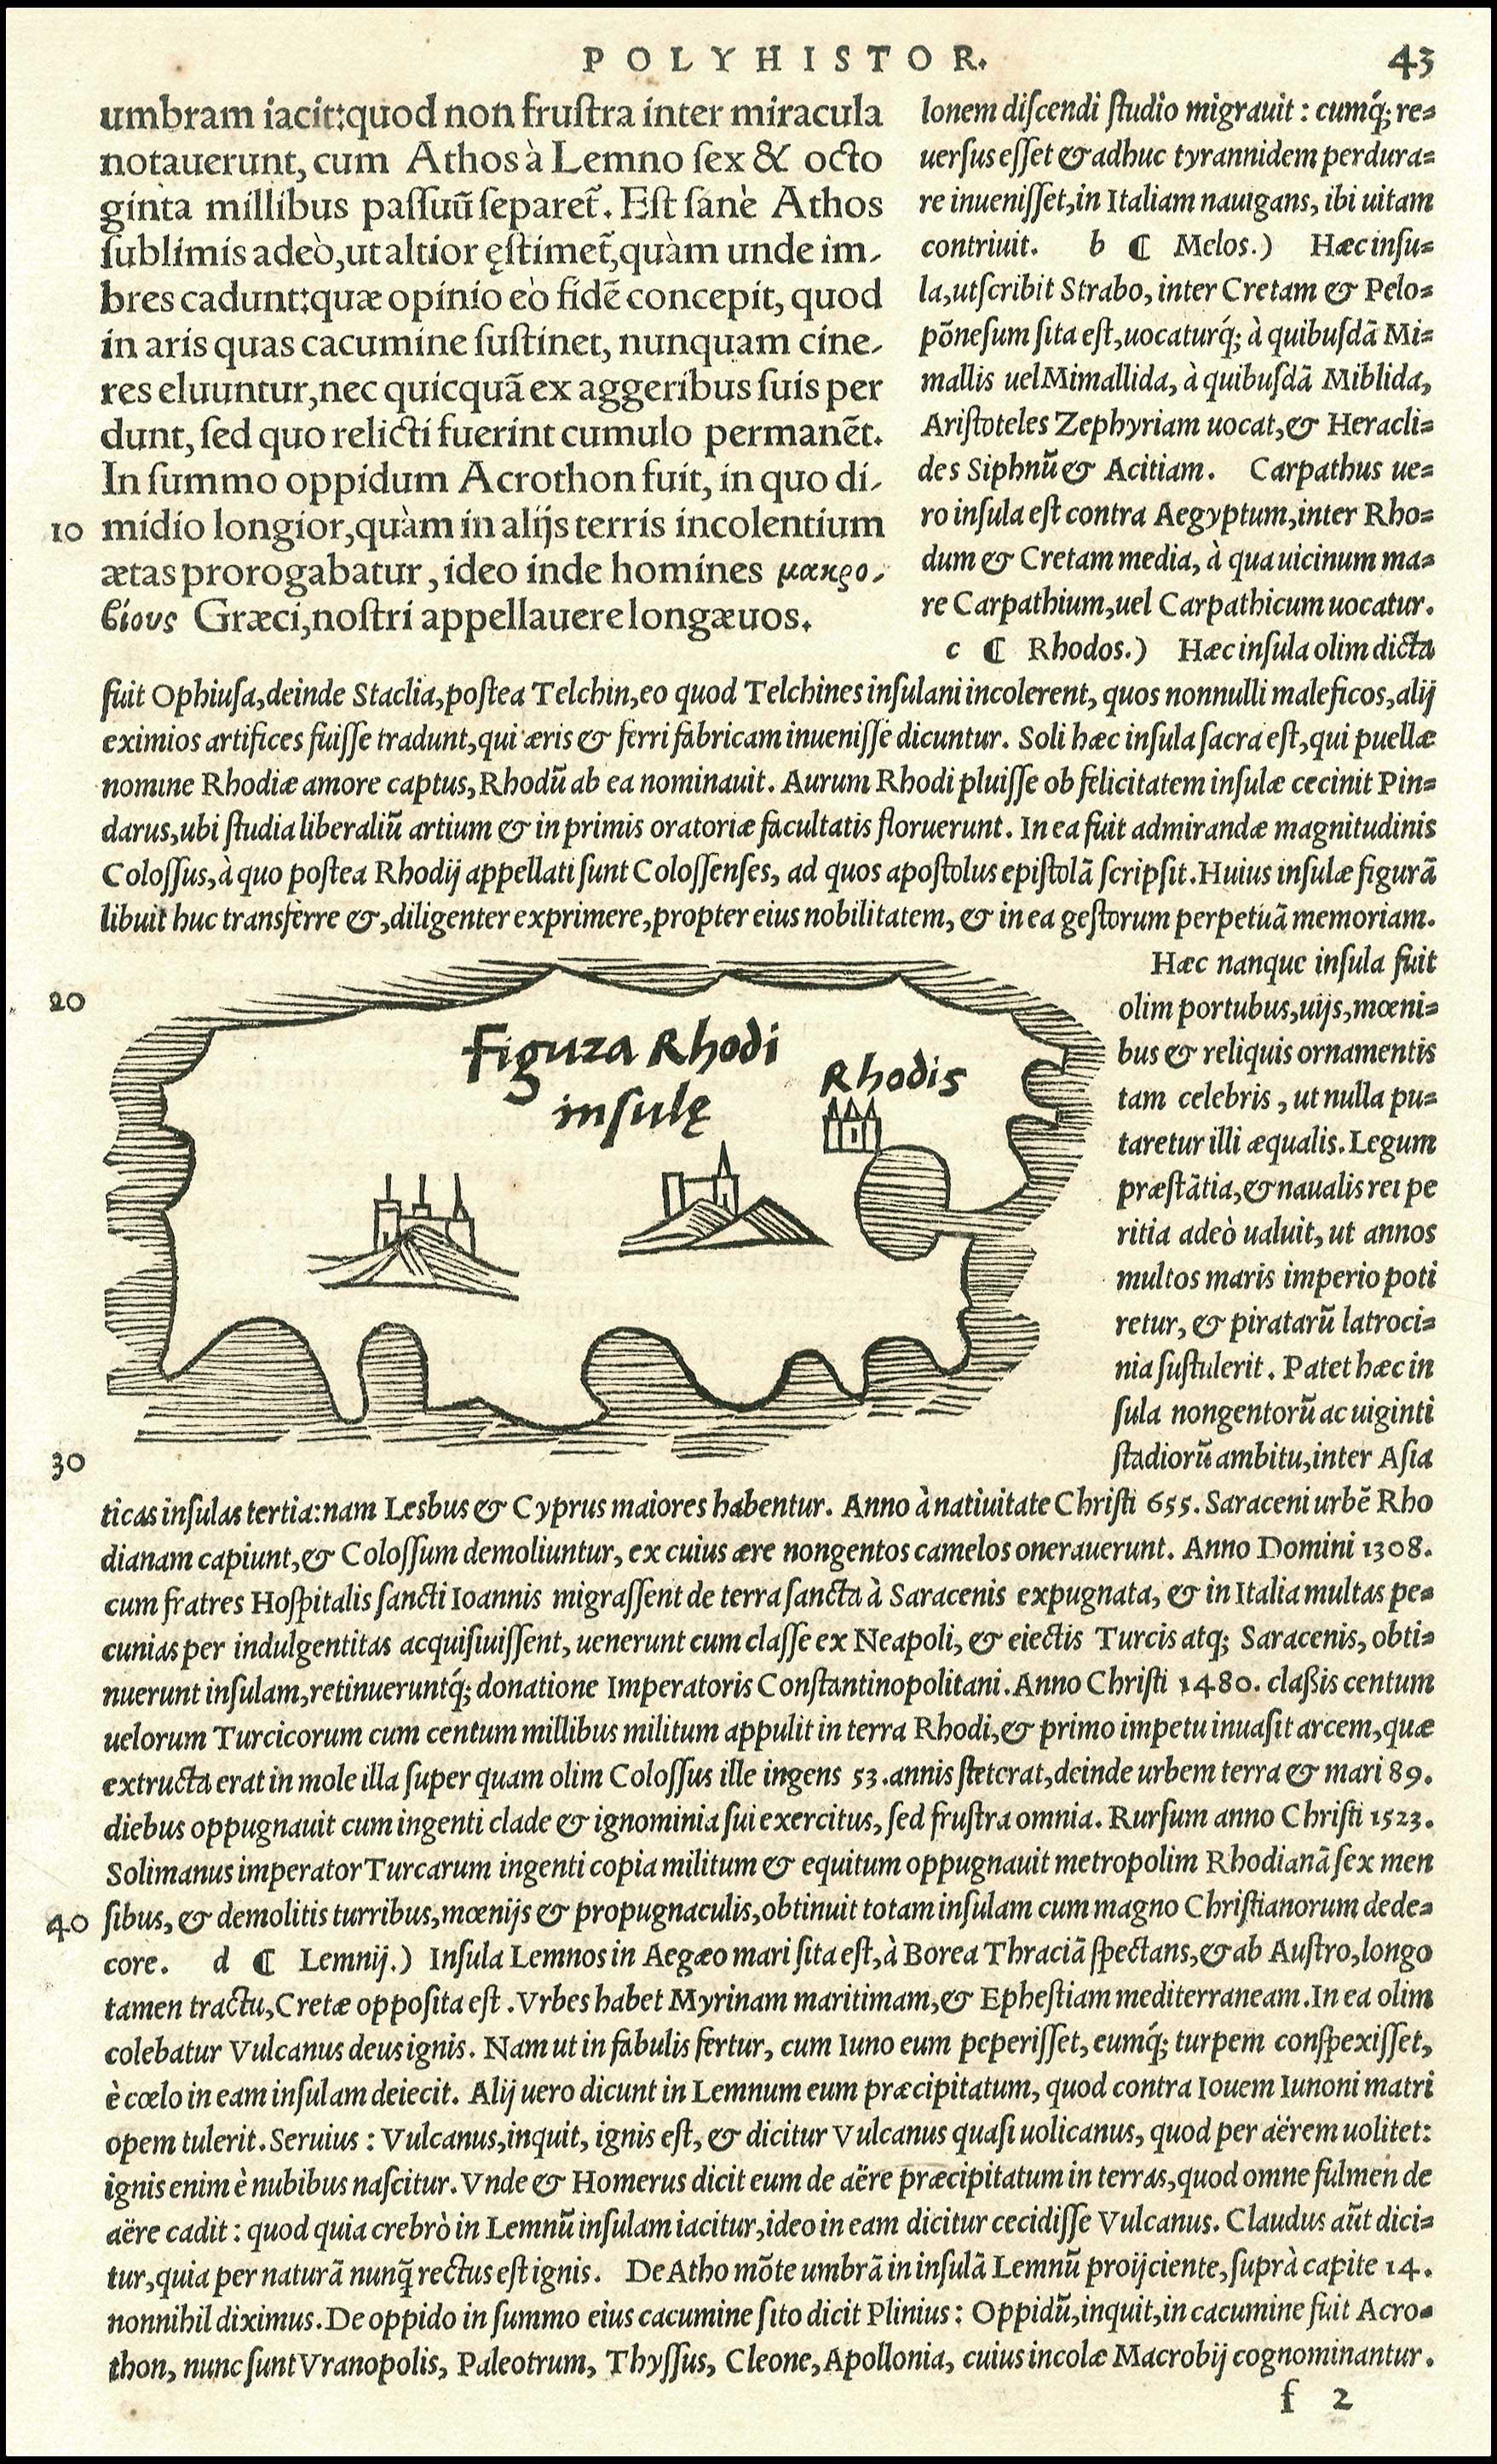 POLYHISTOR.
43
umbram iacit:quod non frustra inter miracula
notauerunt, cum Athos à Lemno sex & octo
ginta millibus passuũ separet᷉. Est sanè Athos
sublimis adeò,ut altior ęstimet᷉,quàm unde im-
bres cadunt:quæ opinio eò fidẽ concepit, quod
in aris quas cacumine sustinet, nunquam cine-
res eluuntur,nec quicquã ex aggeribus suis per
dunt, sed quo relicti fuerint cumulo permanẽt.
In summo oppidum Acrothon fuit, in quo di-
10 midio longior,quàm in alijs terris incolentium
ætas prorogabatur, ideo inde homines μακρο-
βίους Græci,nostri appellauere longæuos.
lonem discendi studio migrauit : cumq́; re=
uersus esset & adhuc tyrannidem perdura=
re inuenisset,in Italiam nauigans, ibi uitam
contriuit. b ¶ Melos.) Hæc insu=
la,ut scribit Strabo, inter Cretam & Pelo=
põnesum sita est,uocaturq́; à quibusdã Mi=
mallis uel Mimallida, à quibusdã Miblida,
Aristoteles Zephyriam uocat,& Heracli=
des Siphnũ & Acitiam. Carpathus ue=
ro insula est contra Aegyptum,inter Rho=
dum & Cretam media, à qua uicinum ma=
re Carpathium,uel Carpathicum uocatur.
c ¶ Rhodos.) Hæc insula olim dicta
fuit Ophiusa,deinde Staclia,postea Telchin,eo quod Telchines insulani incolerent, quos nonnulli maleficos,alij
eximios artifices fuisse tradunt,qui æris & ferri fabricam inuenisse dicuntur. Soli hæc insula sacra est,qui puellæ
nomine Rhodiæ amore captus, Rhodũ ab ea nominauit. Aurum Rhodi pluisse ob felicitatem insulæ cecinit Pin=
darus,ubi studia liberaliũ artium & in primis oratoriæ facultatis floruerunt. In ea fuit admirandæ magnitudinis
Colossus,à quo postea Rhodij appellati sunt Colossenses, ad quos apostolus epistolã scripsit. Huius insulæ figurã
libuit huc transferre &,diligenter exprimere,propter eius nobilitatem, & in ea gestorum perpetuã memoriam.
20
Figura Rhodi
insulę
Rhodis
Hæc nanque insula fuit
olim portubus,uijs,mœni=
bus & reliquis ornamentis
tam celebris, ut nulla pu=
taretur illi æqualis. Legum
præstãtia,& naualis rei pe
ritia adeò ualuit, ut annos
multos maris imperio poti
retur, & piratarũ latroci=
nia sustulerit. Patet hæc in
sula nongentorũ ac uiginti
stadiorũ ambitu,inter Asia
30
ticas insulas tertia:nam Lesbus & Cyprus maiores habentur. Anno à natiuitate Christi 655. Saraceni urbẽ Rho
dianam capiunt,& Colossum demoliuntur, ex cuius ære nongentos camelos onerauerunt. Anno Domini 1308.
cum fratres Hospitalis sancti Ioannis migrassent de terra sancta à Saracenis expugnata, & in Italia multas pe=
cunias per indulgentitas acquisiuissent, uenerunt cum classe ex Neapoli, & eiectis Turcis atq; Saracenis, obti=
nuerunt insulam,retinueruntq́; donatione Imperatoris Constantinopolitani. Anno Christi 1480. claßis centum
uelorum Turcicorum cum centum millibus militum appulit in terra Rhodi,& primo impetu inuasit arcem,quæ
extructa erat in mole illa super quam olim Colossus ille ingens 53.annis steterat,deinde urbem terra & mari 89.
diebus oppugnauit cum ingenti clade & ignominia sui exercitus, sed frustra omnia. Rursum anno Christi 1523.
Solimanus imperator Turcarum ingenti copia militum & equitum oppugnauit metropolim Rhodianã sex men
40 sibus, & demolitis turribus,mœnijs & propugnaculis,obtinuit totam insulam cum magno Christianorum dede=
core. d ¶ Lemnij.) Insula Lemnos in Aegæo mari sita est, à Borea Thraciã spectans,& ab Austro,longo
tamen tractu,Cretæ opposita est. Vrbes habet Myrinam maritimam,& Ephestiam mediterraneam. In ea olim
colebatur Vulcanus deus ignis. Nam ut in fabulis fertur, cum Iuno eum peperisset, eumq́; turpem conspexisset,
è cœlo in eam insulam deiecit. Alij uero dicunt in Lemnum eum præcipitatum, quod contra Iouem Iunoni matri
opem tulerit. Seruius : Vulcanus,inquit, ignis est, & dicitur Vulcanus quasi uolicanus, quod per aërem uolitet:
ignis enim è nubibus nascitur. Vnde & Homerus dicit eum de aëre præcipitatum in terras,quod omne fulmen de
aëre cadit : quod quia crebrò in Lemnũ insulam iacitur,ideo in eam dicitur cecidisse Vulcanus. Claudus aũt dici=
tur,quia per naturã nunq̃ rectus est ignis. De Atho mõte umbrã in insulã Lemnũ proijciente, suprà capite 14.
nonnihil diximus. De oppido in summo eius cacumine sito dicit Plinius : Oppidũ,inquit,in cacumine fuit Acro=
thon, nunc sunt Vranopolis, Paleotrum, Thyssus, Cleone, Apollonia, cuius incolæ Macrobij cognominantur.
f 2